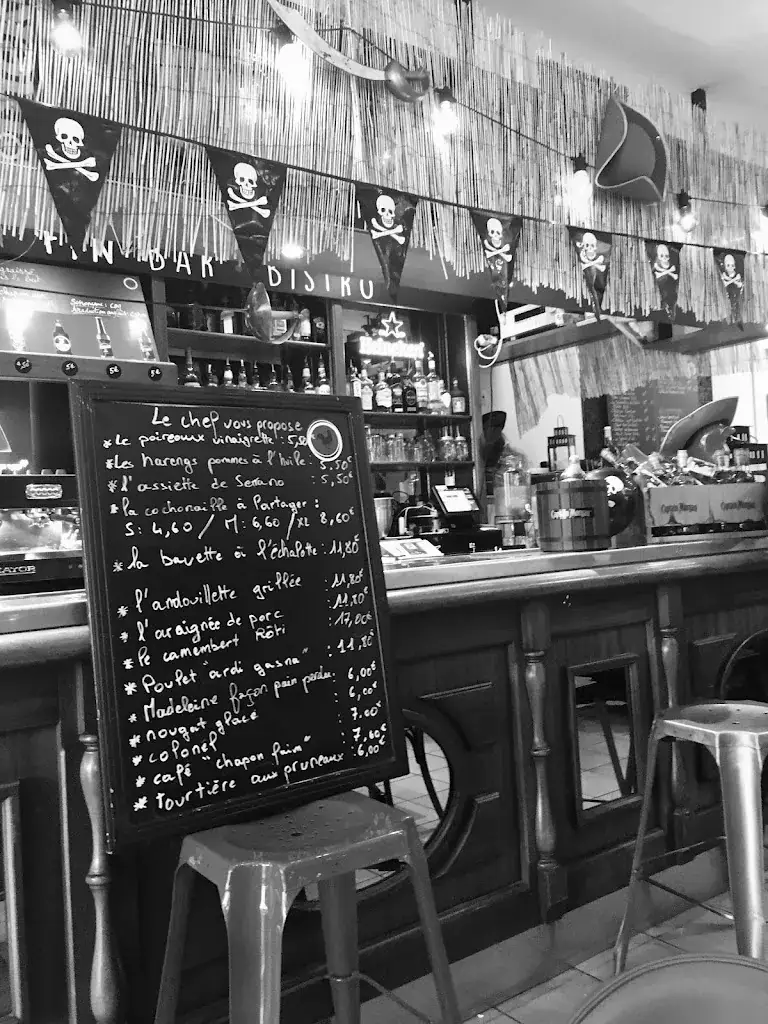 BAR BISTRO
Le chef vous propose
* Le poireaux vinaigrette : 5,50
* Les harengs pommes à l'huile : 5,50€
* l'assiette de Serrano : 5,50€
* la cochonaille à Partager :
S: 4,60 / M: 6,60 / XL 8,60€
* la bavette à l'échalote : 11,80€
* l'andouillette grillée : 11,80€
* l'araignée de porc : 11,80€
* le camembert Rôti : 17,00€
* Poulet "ardi gasna" : 11,80€
* Madeleine façon pain perdu : 6,00€
* nougat glacé : 6,00€
* colonel : 7,00€
* café "chapon faim" : 7,60€
* Tourtière aux pruneaux : 6,00€
Captain Morgan
Captain Morgan